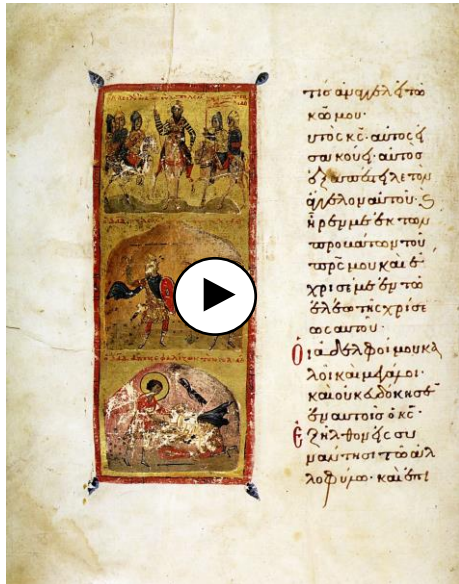 τίσ ἀναγγελεῖ τῶ
κῶ μου·
αὐτὸς κς· αὐτὸς εἰ
σακούει· αὐτὸσ
ἐξαπέστειλε τὸν
ἄγγελον αὐτοῦ· ϗ
ἦρέν με ἐκ τῶν
προβάτων τοῦ
πρς μου καὶ ἔ
χρισέ με ἐν τῶ
ἐλέω τῆς χρίσε
ως αὐτοῦ·
Οἱ ἀδελφοί μου κα
λοὶ καὶ μεγάλοι·
καὶ οὐκ εὐδόκησεν
ἐν αὐτοῖσ ὁ κς·
Ἐξῆλθον εἰς συ
νάντησιν τῶ ἀλ
λοφύλω· καὶ ἐπι